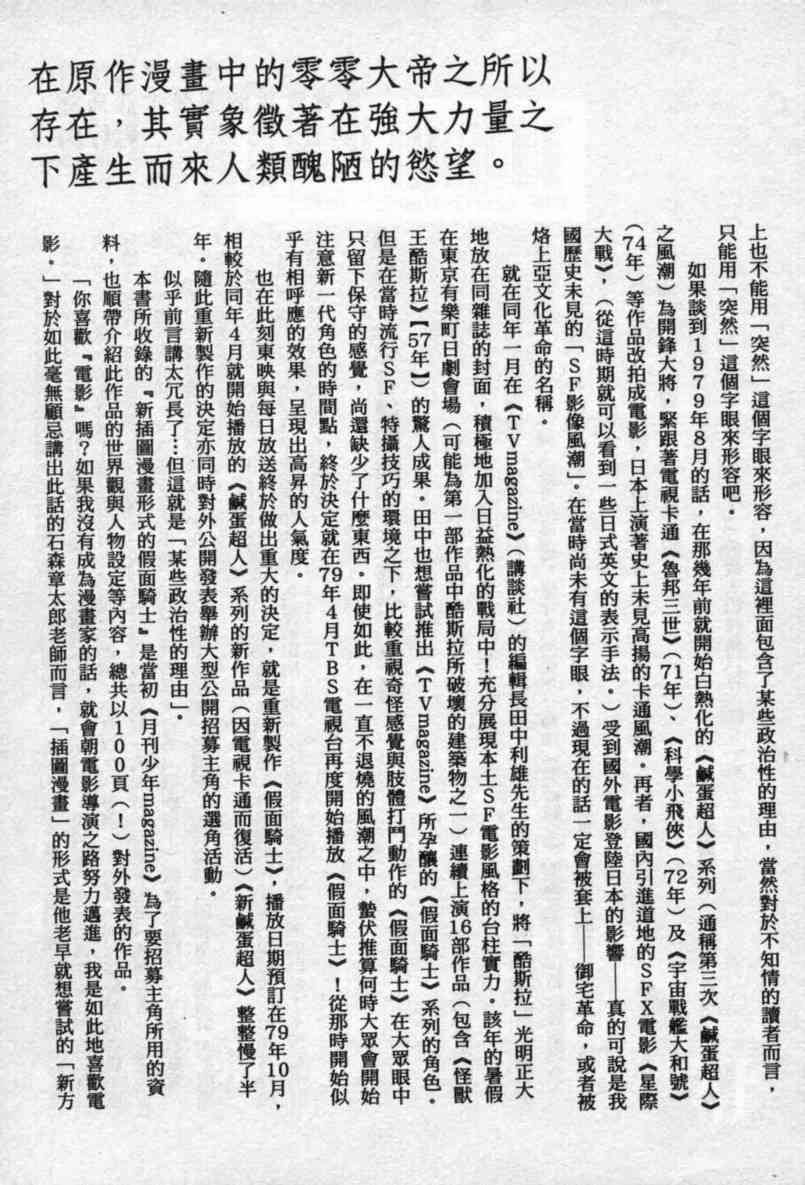 在原作漫畫中的零零大帝之所以
存在，其實象徵著在強大力量之
下產生而來人類醜陋的慾望。
上也不能用「突然」這個字眼來形容，因為這裡面包含了某些政治性的理由，當然對於不知情的讀者而言，
只能用「突然」這個字眼來形容吧。
如果談到1979年8月的話，在那幾年前就開始白熱化的《鹹蛋超人》系列（通稱第三次《鹹蛋超人》
之風潮）為開鋒大將，緊跟著電視卡通《魯邦三世》（71年）、《科學小飛俠》（72年）及《宇宙戰艦大和號》
（74年）等作品改拍成電影，日本上演著史上未見高揚的卡通風潮。再者，國內引進道地的SFX電影《星際
大戰》，（從這時期就可以看到一些日式英文的表示手法。）受到國外電影登陸日本的影響——真的可說是我
國歷史未見的「SF影像風潮」。在當時尚未有這個字眼，不過現在的話一定會被套上——御宅革命，或者被
烙上亞文化革命的名稱。
就在同年一月在《TVmagazine》（講談社）的編輯長田中利雄先生的策劃下，將「酷斯拉」光明正大
地放在同雜誌的封面，積極地加入日益熱化的戰局中！充分展現本土SF電影風格的台柱實力。該年的暑假
在東京有樂町日劇會場（可能為第一部作品中酷斯拉所破壞的建築物之一）連續上演16部作品（包含《怪獸
王酷斯拉》【57年】）的驚人成果。田中也想嘗試推出《TVmagazine》所孕釀的《假面騎士》系列的角色。
但是在當時流行SF、特攝技巧的環境之下，比較重視奇怪感覺與肢體打鬥動作的《假面騎士》在大眾眼中
只留下保守的感覺，尚還缺少了什麼東西。即使如此，在一直不退燒的風潮之中，蟄伏推算何時大眾會開始
注意新一代角色的時間點，終於決定就在79年4月TBS電視台再度開始播放《假面騎士》！從那時開始似
乎有相呼應的效果，呈現出高昇的人氣度。
也在此刻東映與每日放送終於做出重大的決定，就是重新製作《假面騎士》，播放日期預訂在79年10月，
相較於同年4月就開始播放的《鹹蛋超人》系列的新作品（因電視卡通而復活）《新鹹蛋超人》整整慢了半
年。隨此重新製作的決定亦同時對外公開發表舉辦大型公開招募主角的選角活動。
似乎前言講太冗長了…但這就是「某些政治性的理由」。
本書所收錄的『新插圖漫畫形式的假面騎士』是當初《月刊少年magazine》為了要招募主角所用的資
料，也順帶介紹此作品的世界觀與人物設定等內容，總共以100頁（！）對外發表的作品。
「你喜歡『電影』嗎？如果我沒有成為漫畫家的話，就會朝電影導演之路努力邁進，我是如此地喜歡電
影。」對於如此毫無顧忌講出此話的石森章太郎老師而言，「插圖漫畫」的形式是他老早就想嘗試的「新方